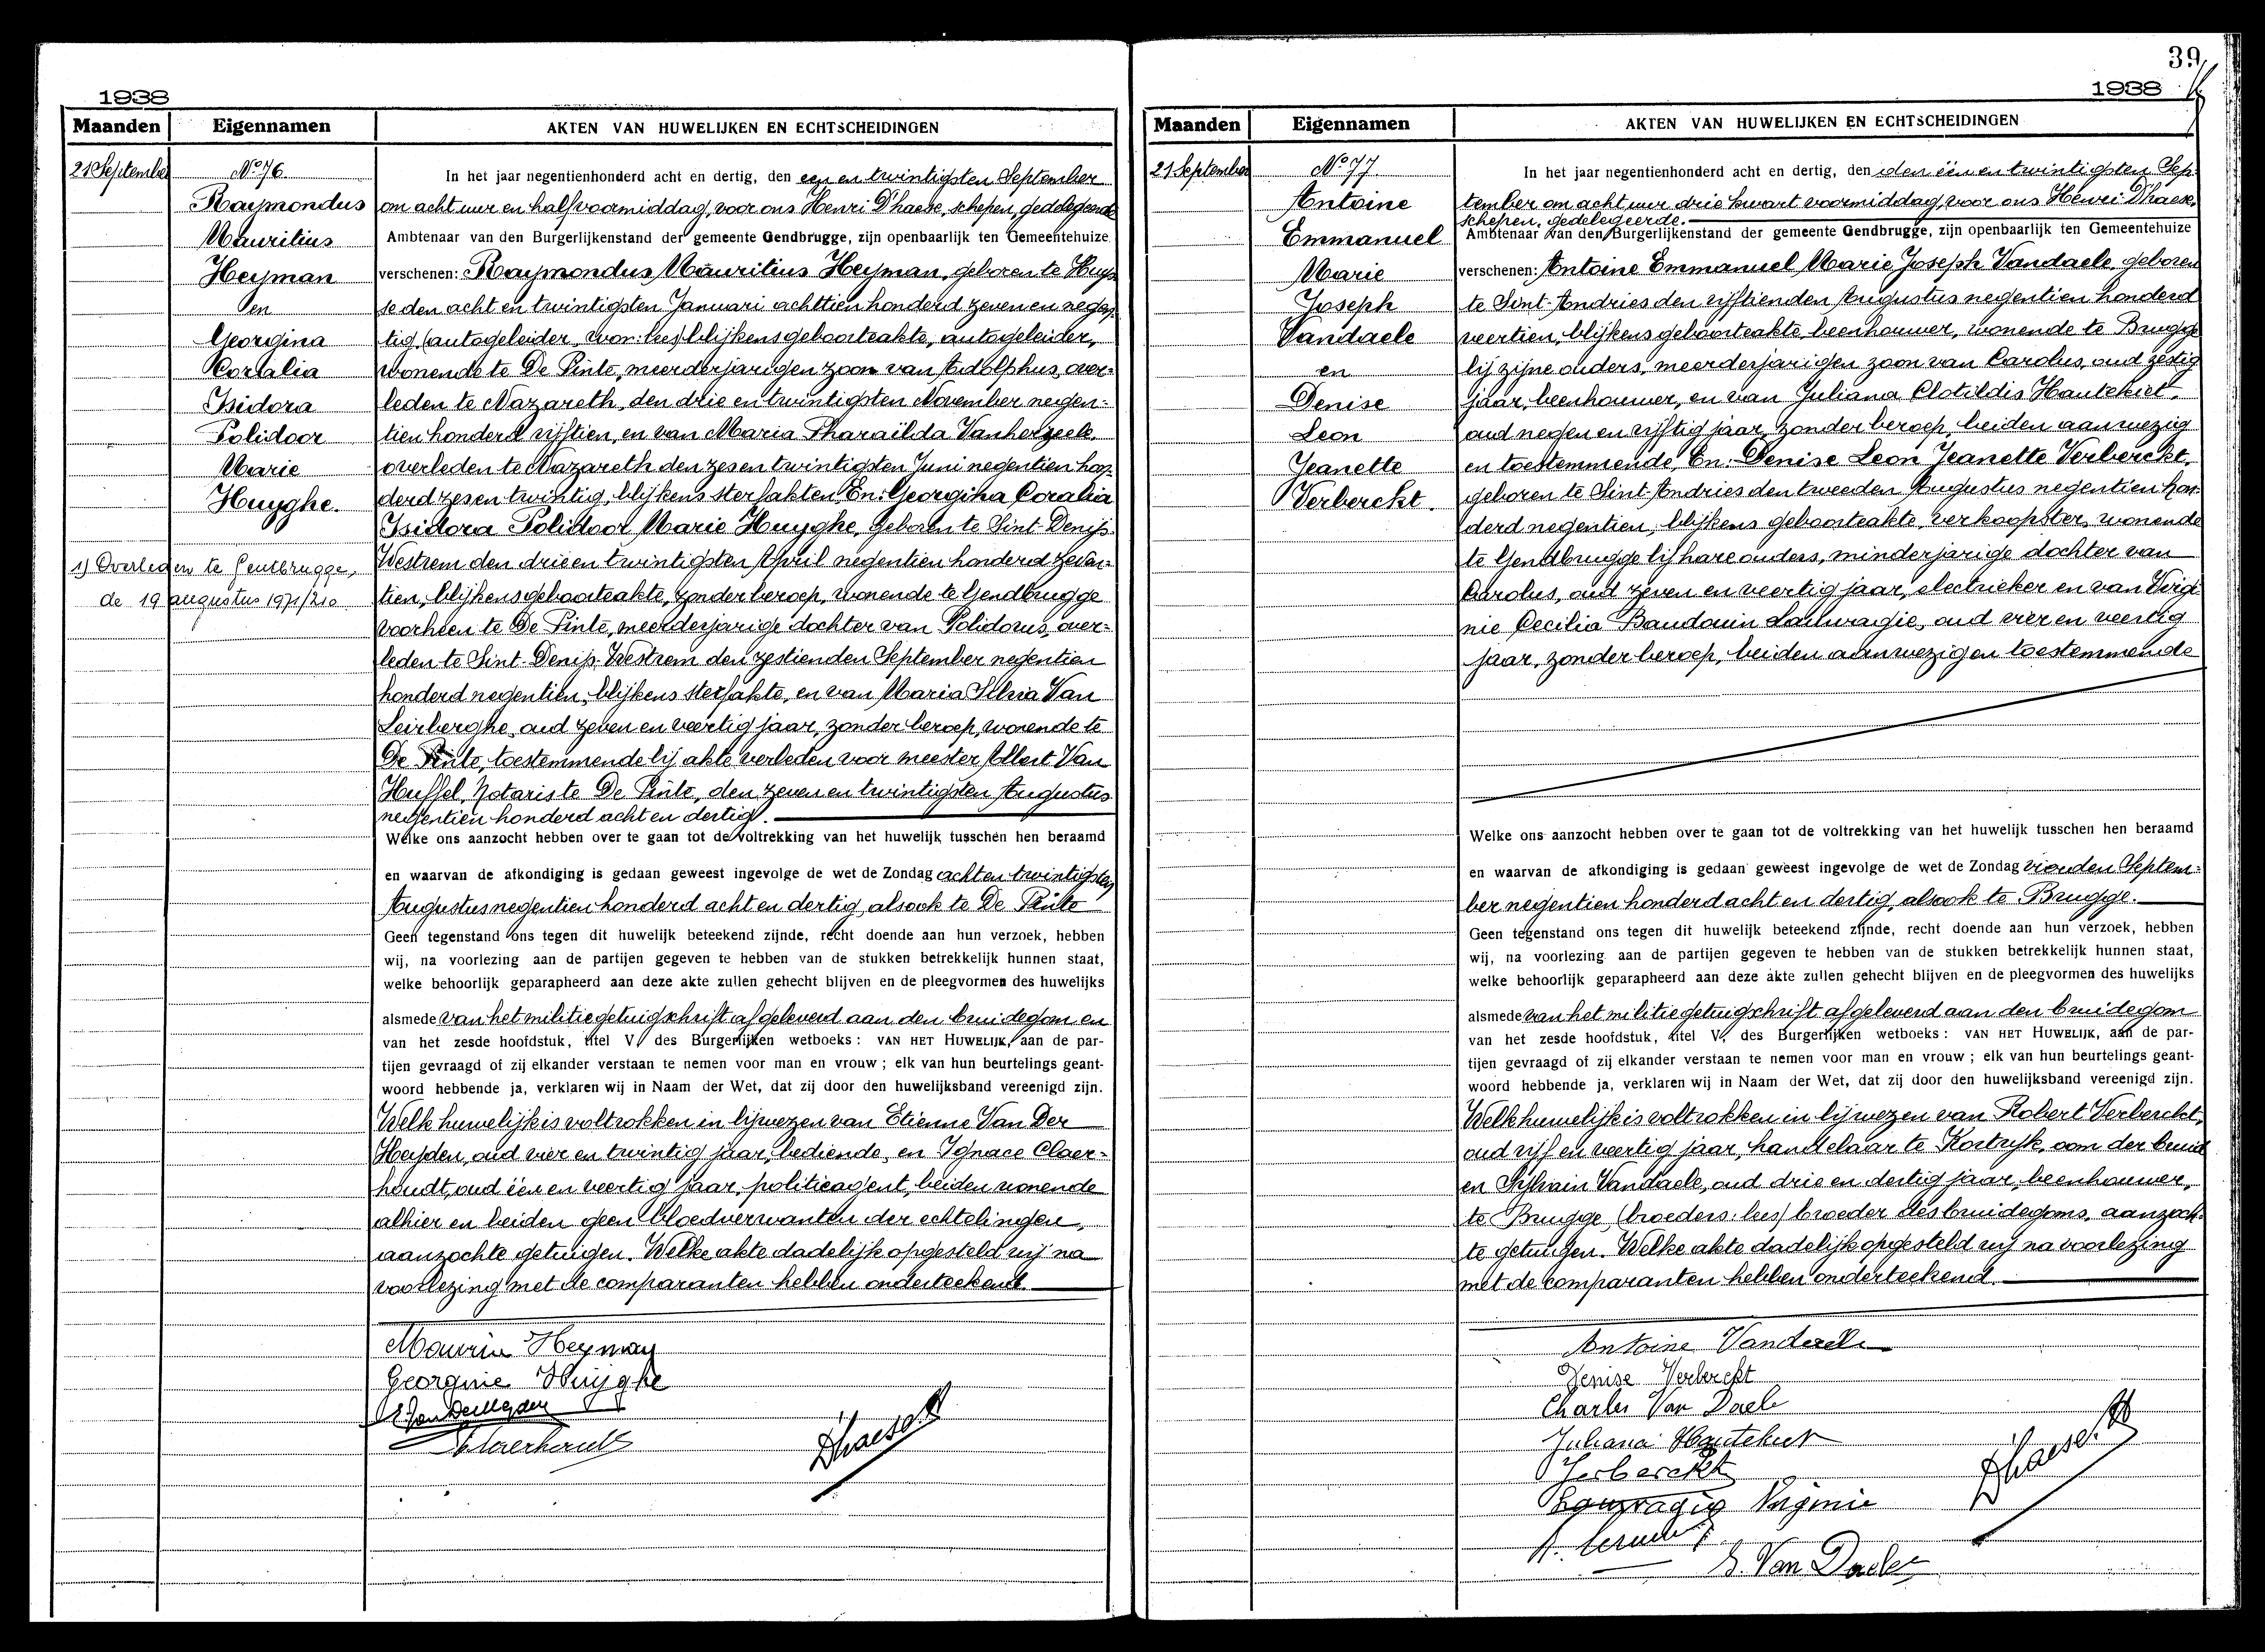 1938
Maanden Eigennamen AKTEN VAN HUWELIJKEN EN ECHTSCHEIDINGEN
21 September
No 76
Raymondus
Mauritius
Heyman
en
Georgina
Coralia
Isidora
Polidoor
Marie
Huyghe.
1) Overleden te Gentbrugge,
de 19 augustus 1971/210
In het jaar negentienhonderd acht en dertig, den een en twintigsten September
om acht uur en half voormiddag, voor ons Henri D'haese, schepen, gedelegeerde
Ambtenaar van den Burgerlijkenstand der gemeente Gendbrugge, zijn openbaarlijk ten Gemeentehuize
verschenen: Raymondus Mauritius Heyman, geboren te Huys
se den acht en twintigsten Januari achttien honderd zeven en negen
tig (autogeleider, won: lees) blijkens geboorteakte, autogeleider,
wonende te De Pinte, meerderjarigen zoon van Adolphus, over-
leden te Nazareth, den drie en twintigsten November negen-
tien honderd vijftien, en van Maria Pharaïlda Vanherzeele,
overleden te Nazareth den zes en twintigsten Juni negentien hon-
derd zes en twintig, blijkens sterfakten. En: Georgina Coralia
Isidora Polidoor Marie Huyghe, geboren te Sint-Denijs-
Westrem den drie en twintigsten April negentien honderd zeven-
tien, blijkens geboorteakte, zonder beroep, wonende te Gendbrugge
voorheen te De Pinte, meerderjarige dochter van Polidorus, over-
leden te Sint-Denijs-Westrem den zestienden September negentien
honderd negentien, blijkens sterfakte, en van Maria Silvia Van
Leirberghe, oud zeven en veertig jaar, zonder beroep, wonende te
De Pinte, toestemmende bij akte verleden voor meester Albert Van
Huffel, Notaris te De Pinte, den zeven en twintigsten Augustus
negentien honderd acht en dertig.
Welke ons aanzocht hebben over te gaan tot de voltrekking van het huwelijk tusschen hen beraamd
en waarvan de afkondiging is gedaan geweest ingevolge de wet de Zondag acht en twintigsten
Augustus negentien honderd acht en dertig, alsook te De Pinte
Geen tegenstand ons tegen dit huwelijk beteekend zijnde, recht doende aan hun verzoek, hebben
wij, na voorlezing aan de partijen gegeven te hebben van de stukken betrekkelijk hunnen staat,
welke behoorlijk geparapheerd aan deze akte zullen gehecht blijven en de pleegvormen des huwelijks
alsmede van het militiegetuigschrift afgeleverd aan den bruidegom en
van het zesde hoofdstuk, titel V, des Burgerlijken wetboeks: VAN HET HUWELIJK, aan de par-
tijen gevraagd of zij elkander verstaan te nemen voor man en vrouw; elk van hun beurtelings geant-
woord hebbende ja, verklaren wij in Naam der Wet, dat zij door den huwelijksband vereenigd zijn.
Welk huwelijk is voltrokken in bijwezen van Etienne Van Der
Heyden, oud vier en twintig jaar, bediende, en Ignace Claer-
houdt, oud één en veertig jaar, politieagent, beiden wonende
alhier en beiden geen bloedverwanten der echtelingen,
aanzochte getuigen. Welke akte dadelijk opgesteld wij na
voorlezing met de comparanten hebben onderteekend.
Maurice Heyman
Georgine Huyghe
E. VanDerHeyden
Claerhoudt
D'haese H
39
1938
Maanden Eigennamen AKTEN VAN HUWELIJKEN EN ECHTSCHEIDINGEN
21 September
No 77
Antoine
Emmanuel
Marie
Joseph
Vandaele
en
Denise
Leon
Jeanette
Verberckt.
In het jaar negentienhonderd acht en dertig, den den één en twintigsten Sep-
tember om acht uur drie kwart voormiddag, voor ons Henri D'haese,
schepen, gedelegeerde.
Ambtenaar van den Burgerlijkenstand der gemeente Gendbrugge, zijn openbaarlijk ten Gemeentehuize
verschenen: Antoine Emmanuel Marie Joseph Vandaele, geboren
te Sint-Andries den vijftienden Augustus negentien honderd
veertien, blijkens geboorteakte, beenhouwer, wonende te Brugge
bij zijne ouders, meerderjarigen zoon van Carolus, oud zestig
jaar, beenhouwer, en van Juliana Clotildis Hautekiet,
oud negen en vijftig jaar, zonder beroep, beiden aanwezig
en toestemmende. En: Denise Leon Jeanette Verberckt,
geboren te Sint-Andries den tweeden Augustus negentien hon-
derd negentien, blijkens geboorteakte, verkoopster, wonende
te Gendbrugge bij hare ouders, minderjarige dochter van
Carolus, oud zeven en veertig jaar, electrieker en van Virgi-
nie Cecilia Baudouin Lauwagie, oud vier en veertig
jaar, zonder beroep, beiden aanwezig en toestemmende
Welke ons aanzocht hebben over te gaan tot de voltrekking van het huwelijk tusschen hen beraamd
en waarvan de afkondiging is gedaan geweest ingevolge de wet de Zondag vierden Septem-
ber negentien honderd acht en dertig, alsook te Brugge.
Geen tegenstand ons tegen dit huwelijk beteekend zijnde, recht doende aan hun verzoek, hebben
wij, na voorlezing aan de partijen gegeven te hebben van de stukken betrekkelijk hunnen staat,
welke behoorlijk geparapheerd aan deze akte zullen gehecht blijven en de pleegvormen des huwelijks
alsmede van het militiegetuigschrift afgeleverd aan den bruidegom
van het zesde hoofdstuk, titel V, des Burgerlijken wetboeks: VAN HET HUWELIJK, aan de par-
tijen gevraagd of zij elkander verstaan te nemen voor man en vrouw; elk van hun beurtelings geant-
woord hebbende ja, verklaren wij in Naam der Wet, dat zij door den huwelijksband vereenigd zijn.
Welk huwelijk is voltrokken in bijwezen van Robert Verberckt,
oud vijf en veertig jaar, handelaar te Kortrijk, oom der bruid
en Sylvain Vandaele, oud drie en dertig jaar, beenhouwer,
te Brugge, (broeders: lees) broeder des bruidegoms, aanzoch-
te getuigen. Welke akte dadelijk opgesteld wij na voorlezing
met de comparanten hebben onderteekend.
Antoine Vandaele
Denise Verberckt
Charles Van Daele
Juliana Hautekiet
Verberckt
Lauwagie Virginie
S. Van Daele
D'haese H